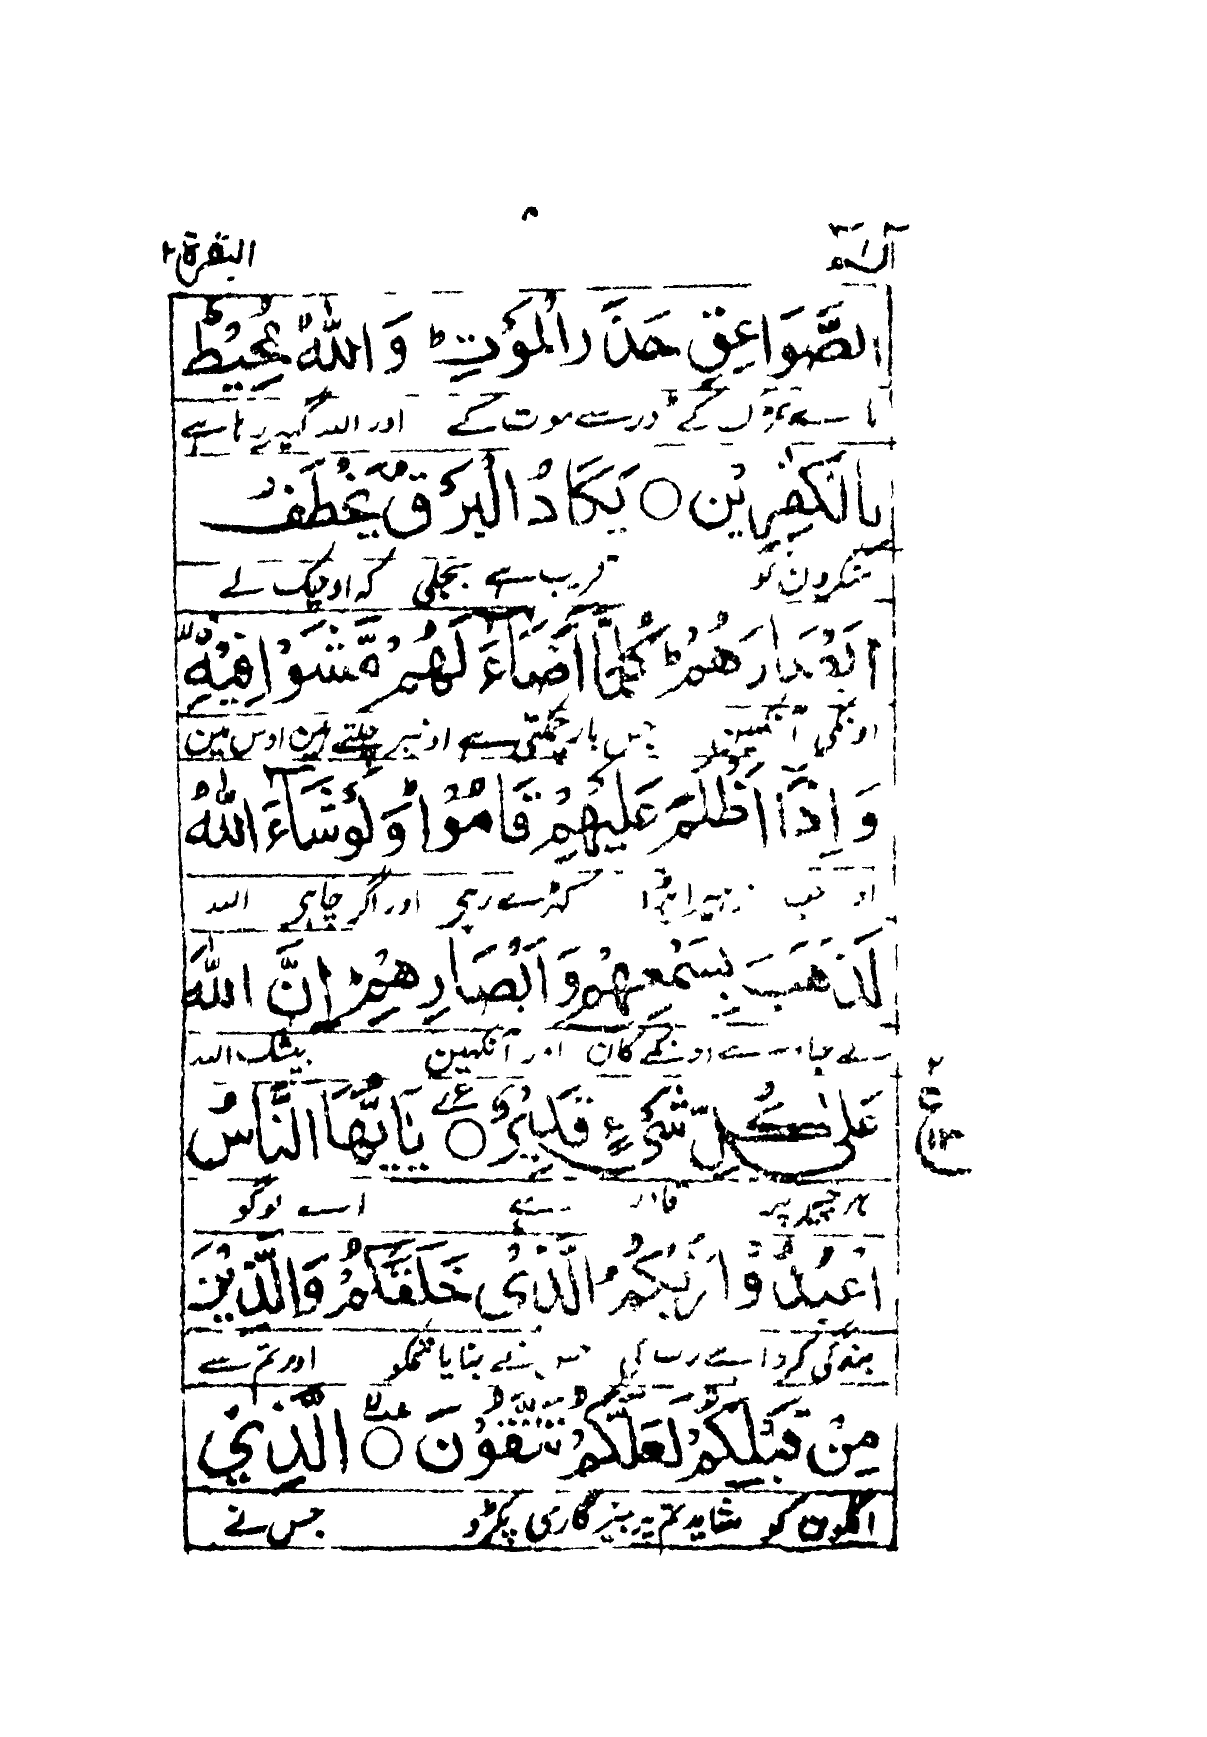 ۸
الٓمٓ ١ البقرة ٢
الصَّوَاعِقِ حَذَرَ الْمَوْتِ ؕ وَ اللّٰهُ مُحِیْطٌۢ
کے ڈر سے موت کے اور اللہ گہیر رہا ہے
بِالْكٰفِرِیْنَ ○ یَكَادُ الْبَرْقُ یَخْطَفُ
منکرون کو قریب ہے بجلی کہ اوچک لے
اَبْصَارَهُمْ ؕ كُلَّمَاۤ اَضَآءَ لَهُمْ مَّشَوْا فِیْهِ ۙ
اونکی آنکہین جس بار چمکتی ہے اونپر چلتے ہین اوس مین
وَ اِذَاۤ اَظْلَمَ عَلَیْهِمْ قَامُوْا ؕ وَ لَوْ شَآءَ اللّٰهُ
اور جب اندہیرا پڑا کہڑے رہے اور اگر چاہے اللہ
لَذَهَبَ بِسَمْعِهِمْ وَ اَبْصَارِهِمْ ؕ اِنَّ اللّٰهَ
لے جاوے اونکے کان اور آنکہین بیشک اللہ
عَلٰى كُلِّ شَیْءٍ قَدِیْرٌ ○ ع یٰۤاَیُّهَا النَّاسُ
ہر چیز پر قادر ہے اے لوگو
٢
ع
١٣
اعْبُدُوْا رَبَّكُمُ الَّذِیْ خَلَقَكُمْ وَ الَّذِیْنَ
بندگی کرو اپنے رب کی جس نے بنایا تمکو اور تم سے
مِنْ قَبْلِكُمْ لَعَلَّكُمْ تَتَّقُوْنَ ○ الَّذِیْ
اگلون کو شاید تم پرہیزگاری پکڑو جس نے